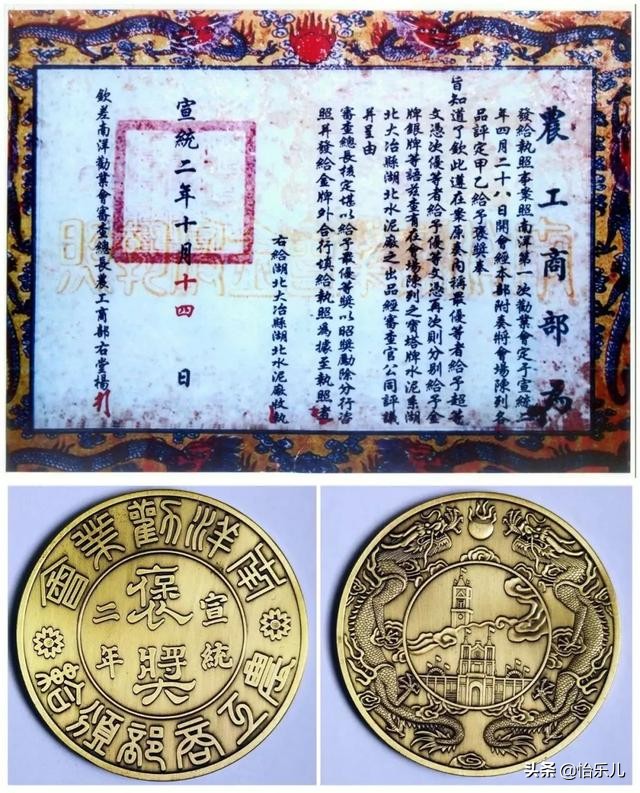 農工商部為
發給執照事案照南洋第一次勸業會定于宣統二
年四月二十八日開會經本部附奏將會場陳列各
品評定甲乙給予褒獎奉
旨知道了欽此遵在案原奏內稱最優等者給予超等
文憑次優等者給予優等文憑再次則分別給予金
牌銀牌等語茲查有在會場陳列之寶塔牌水泥系湖
北大冶縣湖北水泥廠之出品經審查官公同評議
并呈由
審查總長核定堪以給予最優等獎以昭獎勵除分行咨
照并發給金牌外合行填給執照為據至執照者
右給湖北大冶縣湖北水泥廠收執
宣統二年十月十四日
欽差南洋勸業會審查總長農工商部右堂楊
南洋勸業會
宣統二年
褒獎
農工商部頒給
头条 @怡乐儿